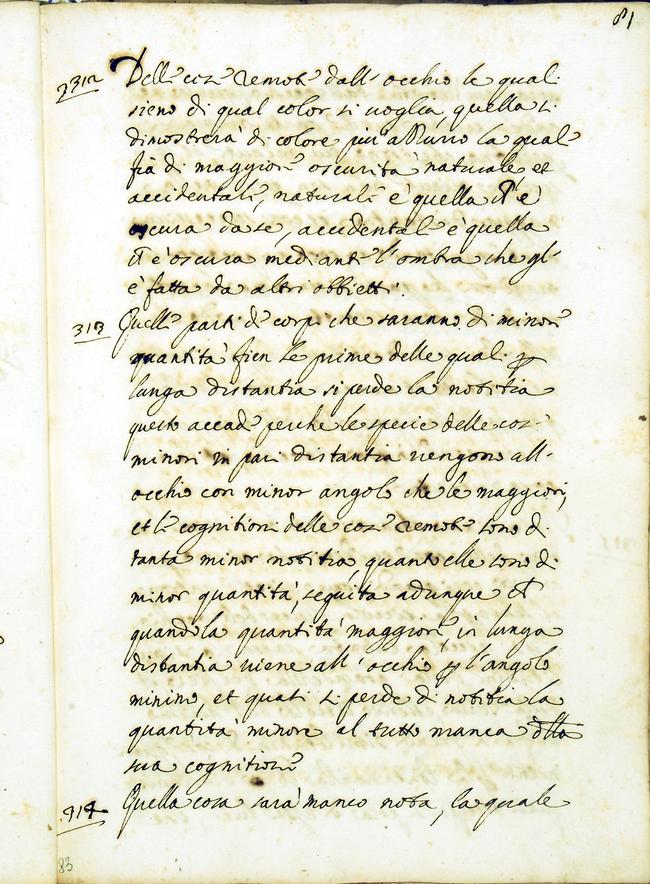 81
2312 Delle cose remote dall'occhio le quali
sieno di qual color si uoglia, quella si
dimostrerà di colore più azzurro la qual
fia di maggiore oscurità naturale, et
accidentale, naturale è quella ch è
oscura da se, accidentale è quella
ch è oscura mediante l'ombra che gl'
è fatta da altri obbietti.
313 Quelle parti de corpi che saranno di minore
quantità fien le prime delle quali p
lunga distantia si perde la notitia
questo accade perche le specie delle cose
minori in pari distantia uengono all'
occhio con minor angolo che le maggiori,
et le cognitioni delle cose remote sono di
tanta minor notitia, quanto elle sono di
minor quantità, seguita adunque ch
quando la quantità maggiore, in lunga
distantia uiene all'occhio p l'angolo
minimo, et quasi si perde di notitia la
quantità minore al tutto manca della
sua cognitione
314 Quella cosa sarà manco nota, la quale
83